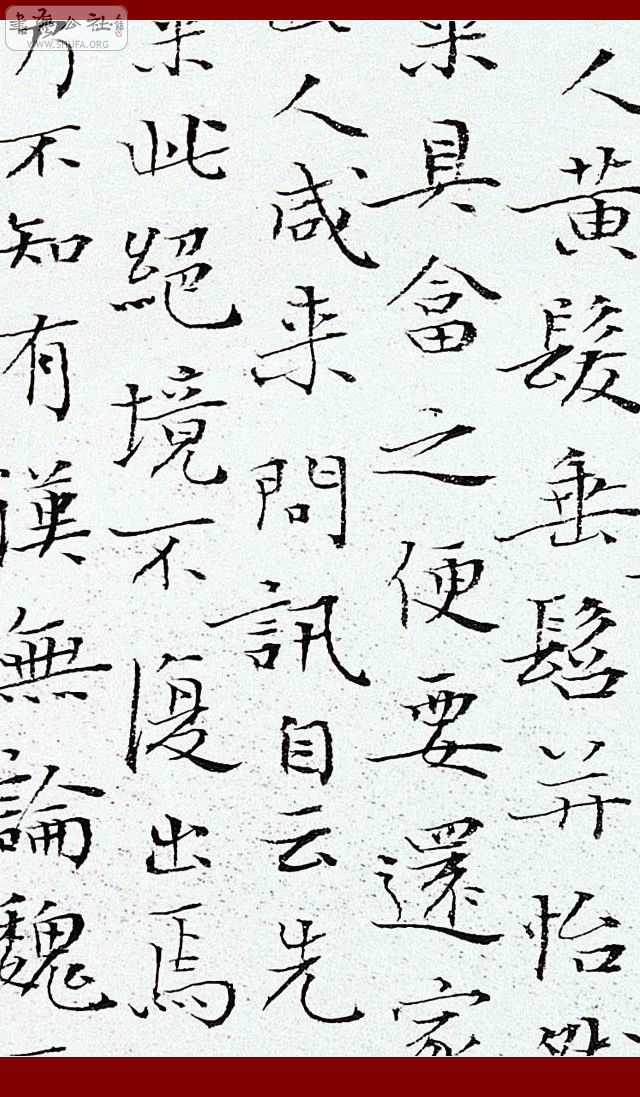 書藝公社
WWW.SHUFA.ORG
人黃髮垂髫并怡然
来具畣之便要還家
此人咸来問訊自云先
来此絕境不復出焉
乃不知有漢無論魏